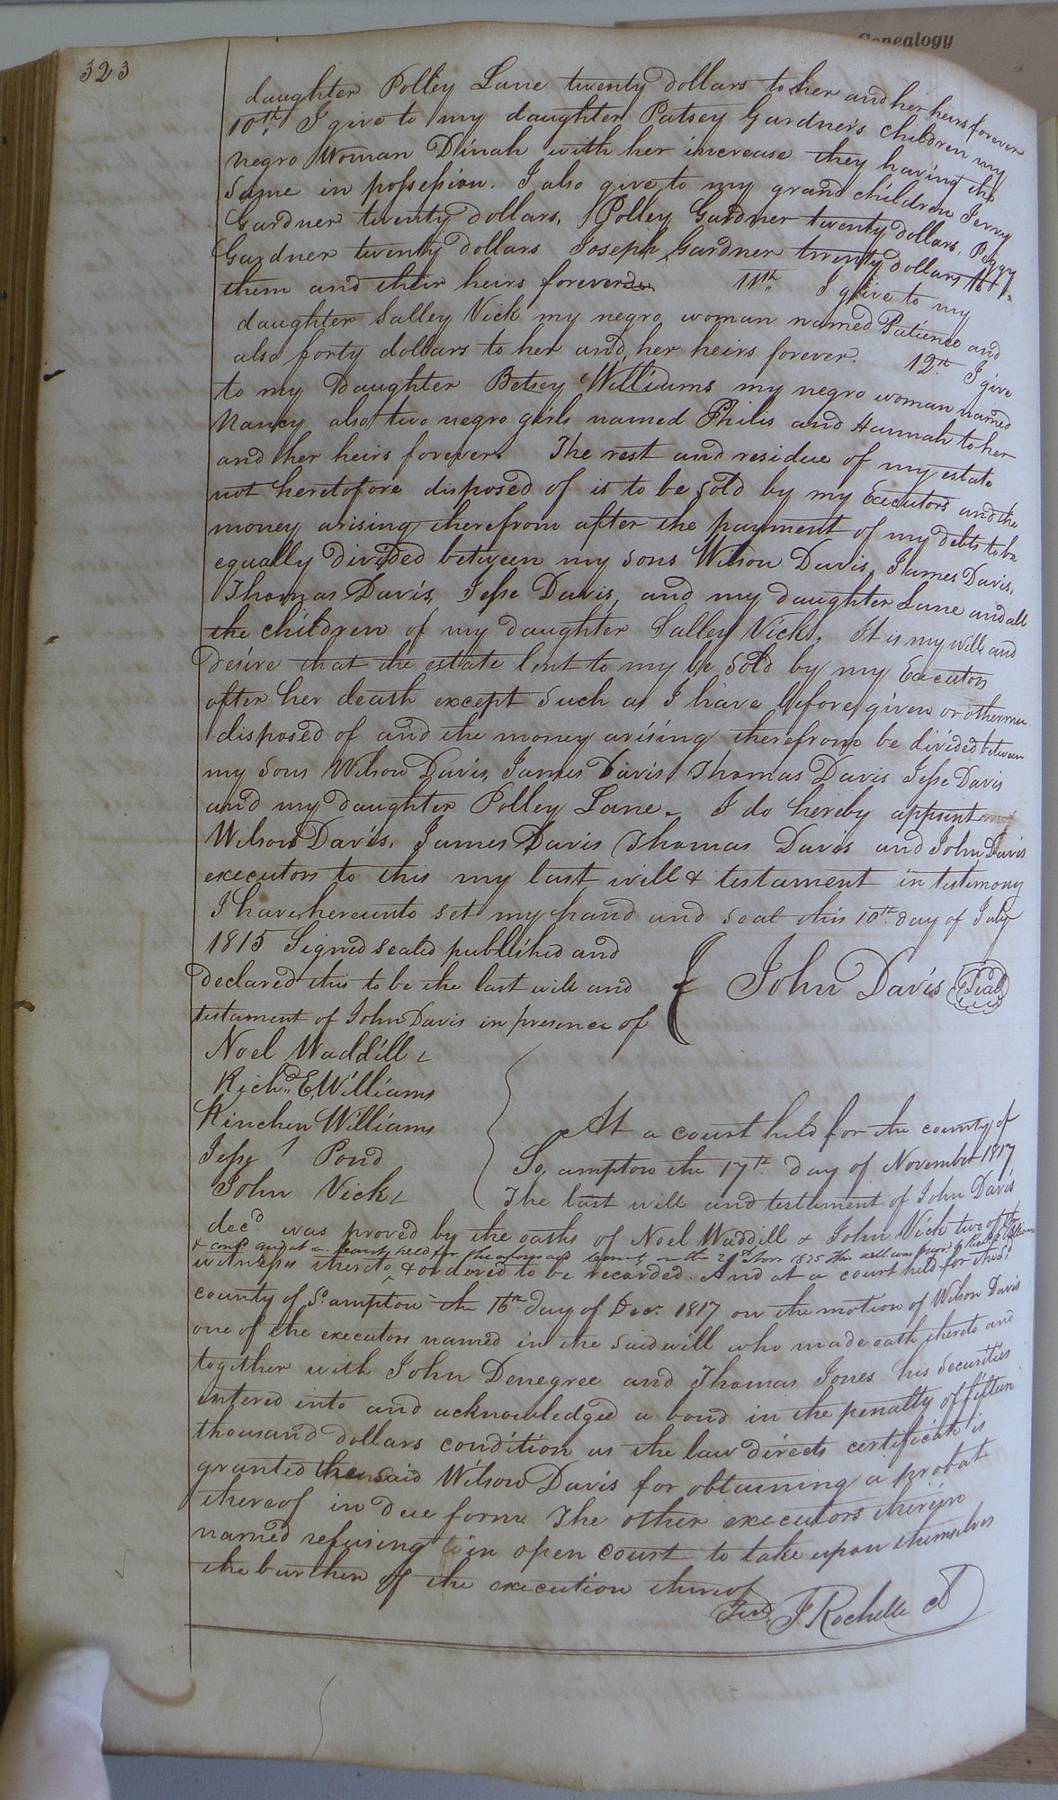 Genealogy
323
daughter Polley Lane twenty dollars to her and her heirs forever
10th I give to my daughter Patsey Gardners children my
negro Woman Dinah with her increase they having the
same in possession. I also give to my grand children Jerry
Gardner twenty dollars, Polley Gardner twenty dollars, Peggy
Gardner twenty dollars Joseph Gardner twenty dollars to
them and their heirs forever 11th I give to my
daughter Salley Vick my negro woman named Patience and
also forty dollars to her and her heirs forever. 12th I give
to my Daughter Betsey Williams my negro woman named
Nancy also two negro girls named Philis and Hannah to her
and her heirs forever The rest and residue of my estate
not heretofore disposed of is to be sold by my Executors and the
money arising therefrom after the payment of my debts to be
equally divided between my sons Wilson Davis, James Davis,
Thomas Davis, Jesse Davis, and my daughter Lane and all
the children of my daughter Salley Vick. It is my will and
desire that the estate lent to my be sold by my Executors
after her death except such as I have before given or otherwise
disposed of and the money arising therefrom be divided between
my sons Wilson Davis, James Davis Thomas Davis Jesse Davis
and my daughter Polley Lane. I do hereby appoint
Wilson Davis, James Davis Thomas Davis and John Davis
executors to this my last will & testament in testimony
I have hereunto set my hand and seal this 10th day of July
1815 Signed sealed published and
declared this to be the last will and
John Davis Seal
testament of John Davis in presence of
Noel Waddill
Richd. E. Williams
Kinchen Williams
Jesse Pond
John Vick
At a court held for the county of
So, ampton the 17th day of November 1817
The last will and testament of John Davis
decd was proved by the oaths of Noel Waddill & John Vick two of the
& at a county held for the aforesaid county on the 21st Nov 1825 this will was
witnesses thereto & ordered to be recorded. And at a court held for the
county of So ampton the 16th day of Dec. 1817 on the motion of Wilson Davis
one of the executors named in the said will who made oath thereto and
together with John Denegree and Thomas Jones his securities
entered into and acknowledged a bond in the penalty of fifteen
thousand dollars condition as the law directs certificate is
granted the said Wilson Davis for obtaining a probat
thereof in due form The other executors therein
named refusing in open court to take upon themselves
the burthen of the execution thereof
J Rochelle